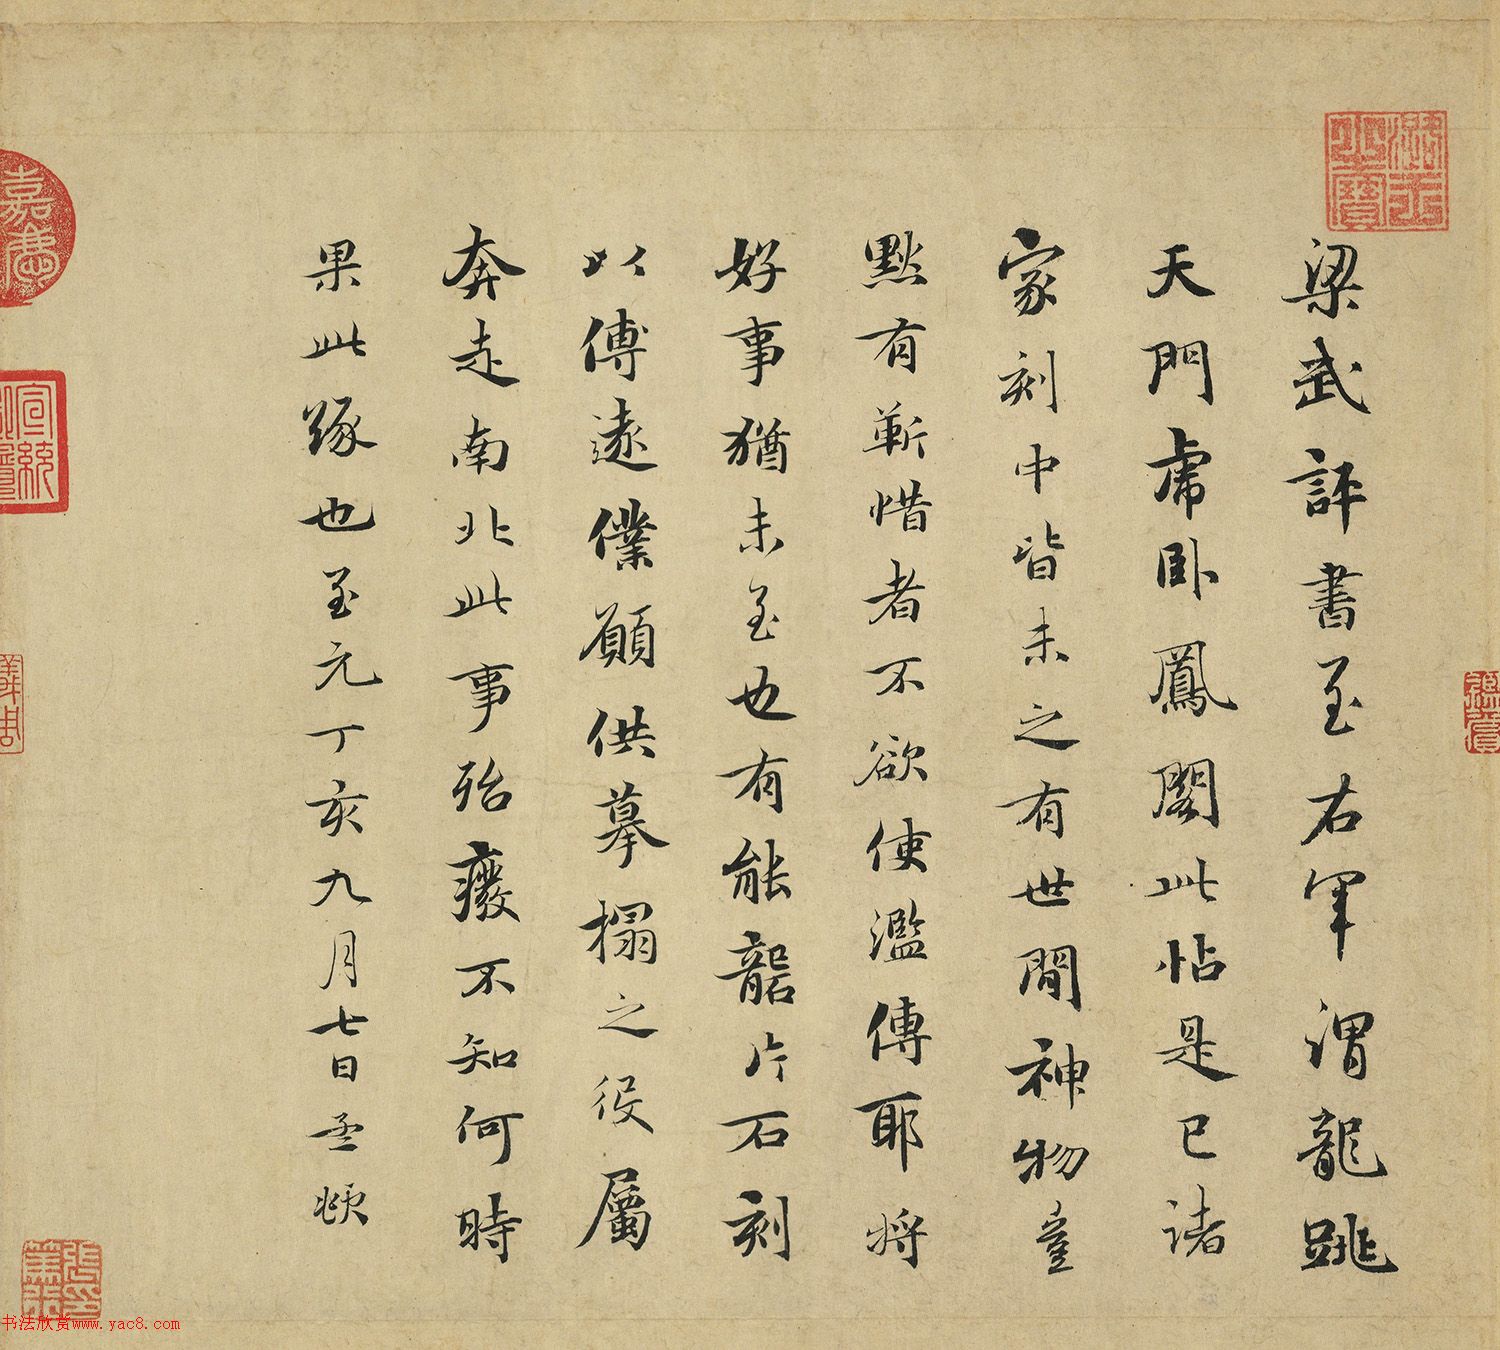 梁武評書至右軍謂龍跳
天門虎卧鳳閣此帖是已諸
家刻中皆未之有世間神物童
㸃有靳惜者不欲使濫傳耶将
好事猶未至也有能礱片石刻
以傅遠僕願供摹榻之役屬
奔走南北此事殆癈不知何時
果此緣也至元丁亥九月七日孟頫
嘉慶
宣統
書法欣賞www.yac8.com